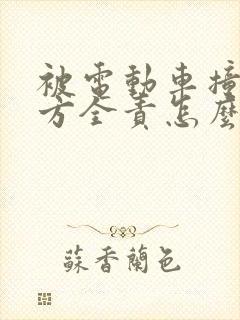 被電動車撞
方全責怎麼
蘇香蘭色